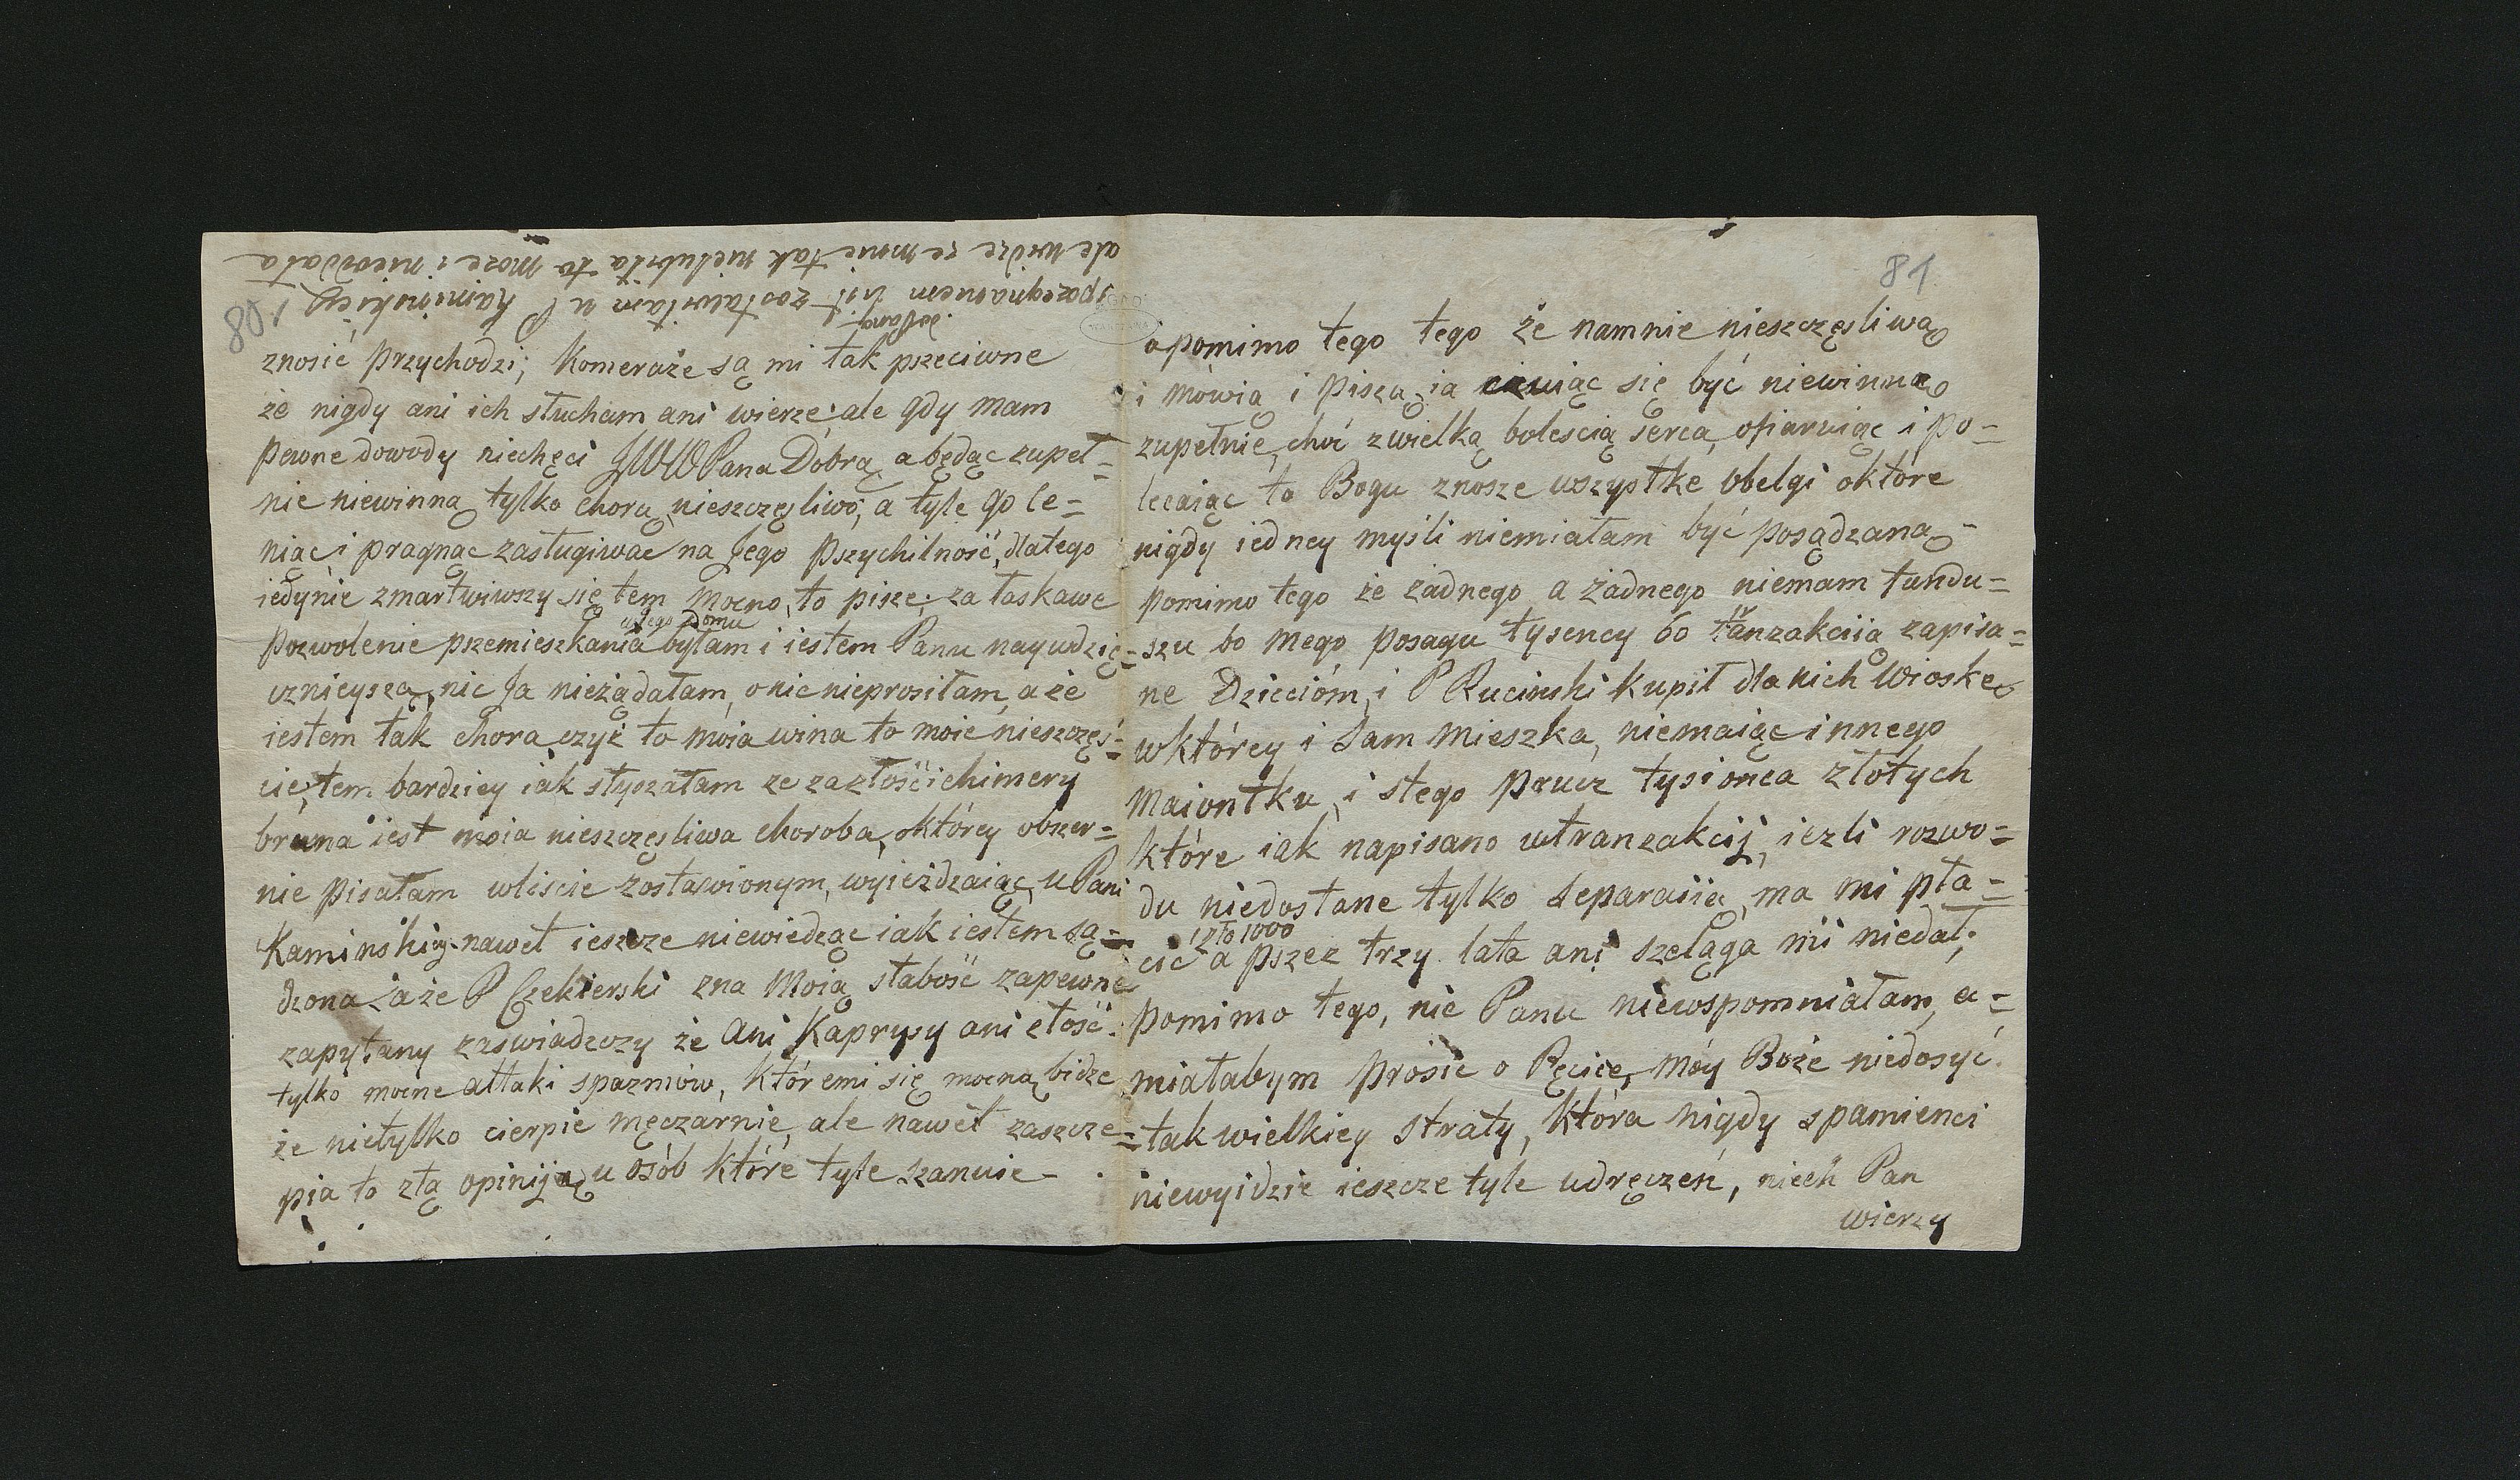 80
znosić przychodzi; Komeraże są mi tak pszeciwne
że nigdy ani ich słucham ani wierze; ale gdy mam
pewne dowody niechęci JWW Pana Dobrą, a będąc zupeł=
nie niewinną tylko chorą, nieszczęsliwo, a tyle go ce=
niąc i pragnąc zasługiwac na Jego Pszychilność, dlatego
iedynie zmartwiwszy się tem mocno, to pisze; za łaskawe
w Jego Domu
pozwolenie pszemieszkania byłam i iestem Panu nayudzię=
cznieyszą, nic Ja nieżądałam, o nic nieprosiłam, a że
iestem tak chora czyż to moia wina to moie nieszczęś=
cie, tem bardziey iak słyszałam ze za złość i chimery
brana iest moia nieszczęsliwa choroba, o którey obszer=
nie pisałam w liscie zostawionym, wyieżdzaiąc, u Pani
Kaminskiey. nawet ieszcze niewiedząc iak iestem są=
dzona; a że P Czekierski zna Moią słabość zapewne
zapytany zaswiadczy że Ani Kaprysy ani złość.
tylko mocne attaki spazmów, któremi się mocną bidze
że nietylko cierpie męczarnie, ale nawet zaszcze=
pia to złą opiniją u osób które tyle szanuie -
ale widze ze mnie tak nielubiła to może i nieoddała
spozegnaniem list zostawiłam u P Kaminskiey
do Pana
81
a pomimo tego tego że namnie nieszczęsliwą
i mówią i piszą, ia czuiąc się być niewinną
zupełnie, choć z wielką boleścią serca, ofiaruiąc i po=
lecaiąc to Bogu znosze wszystke obelgi o które
nigdy iedney myśli niemiałam być posądzaną -
pomimo tego że żadnego a żadnego niemam fundu=
szu bo mego posagu tysency 60 tranzakciią zapisa=
ne Dziecióm, i P Rucinski kupił dla nich Wioske
w którey i Sam mieszka, niemaiąc innego
maiontku, i stego prucz tysionca złotych
które iak napisano wtranzakcij, iezli rozwo=
du niedostane tylko separaiią, ma mi pła=
1 zło 1000
cić a pszez trzy lata ani szeląga mi niedał;
pomimo tego, nic Panu niewspomniałam, a=
miałabym prosic o Ręcice, móy Boże niedosyć
tak wielkiey straty, która nigdy spamienci
niewyidzie ieszcze tyle udręczeń, niech Pan
wierzy